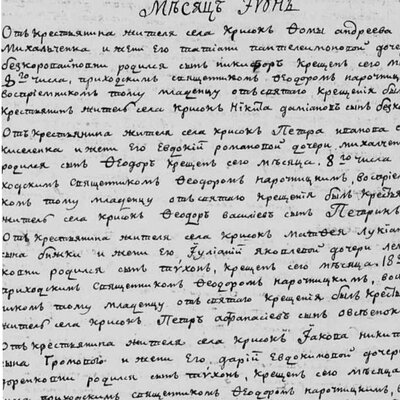 Мѣсяцъ Іюнь
Отъ крестьянина жителя села крисокъ Ѳомы андреева
Михальченка и жены его татіаны пантелеимоновой дочери
безкоровайновны родился сынъ никифоръ крещенъ сего мѣ
8го числа, приходскимъ священникомъ Ѳеодоромъ нарочтицкимъ
воспріемникомъ тому младенцу отъ святаго крещенія былъ
крестьянинъ житель села крисокъ Никіта даміановъ сынъ безко
Отъ крестьянина жителя села крисокъ Петра иванова с
киселенка и жены его Евдокіи романовой дочери михалчен
родился сынъ Ѳеодоръ крещенъ сего мѣсяца. 8го числа
ходскимъ священникомъ Ѳеодоромъ нарочтицкимъ, воспріе
комъ тому младенцу отъ святаго крещенія былъ крестья
житель села крисокъ Ѳеодоръ василіевъ сынъ Петрик
Отъ крестьянина жителя села крисокъ Матѳея Лукіан
сына бѣжки и жены его, Іуліаніи яковлевой дочери ле
ковны родился сынъ тѵхонъ, крещенъ сего мѣсяца. 18
приходскимъ священникомъ Ѳеодоромъ нарочтицкимъ, во
никомъ тому младенцу отъ святаго крещенія былъ крест
житель села крисокъ Петръ афанасіевъ сынъ
Отъ крестьянина жителя села крисокъ Іакова никит
сына Громового и жены его, даріи Евдокимовой дочер
родился сынъ тѵхонъ, крещенъ сего мѣсяца
приходскимъ священникомъ Ѳеодоромъ нарочтицкимъ, в